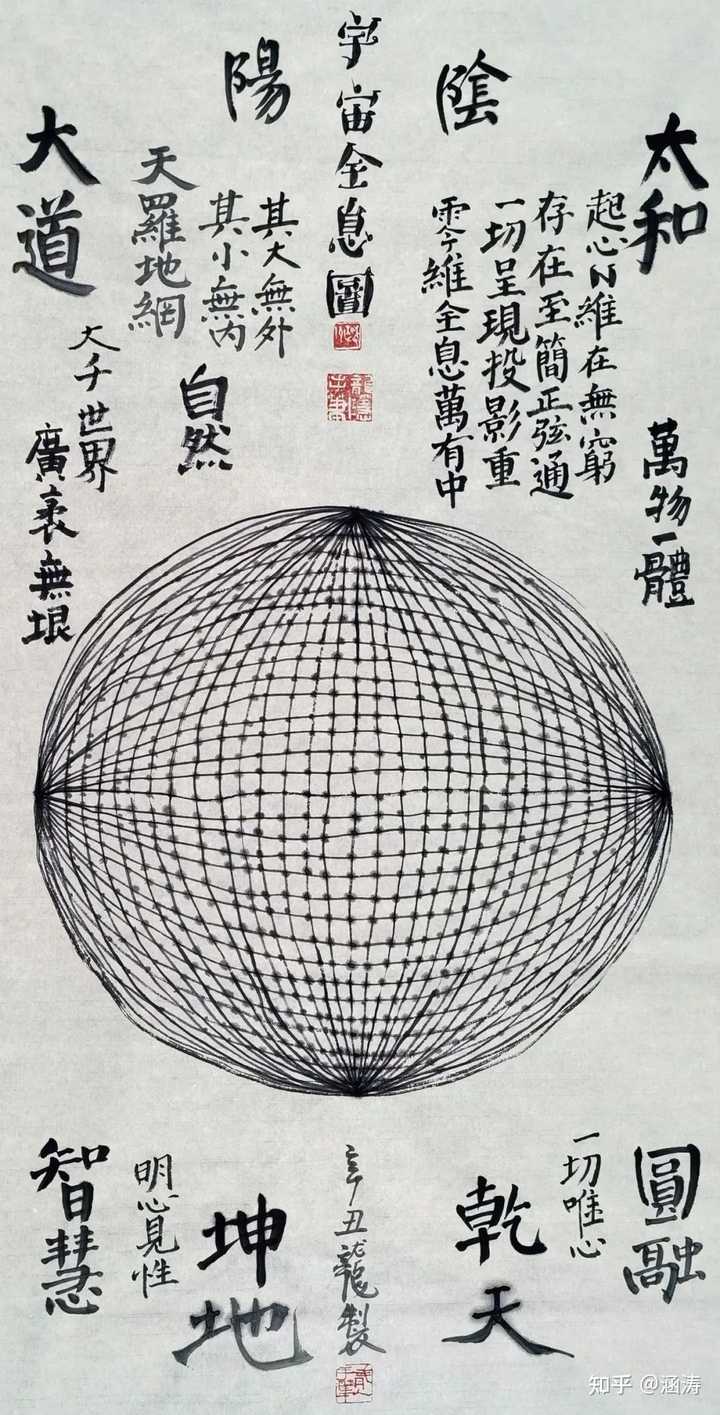 宇宙全息圖
陰
陽
太和
起心N維在無窮
存在至簡正弦通
一切呈現投影重
零維全息萬有中
萬物一體
其大無外
其小無內
天羅地網
大道
自然
大千世界
廣袤無垠
圓融
一切唯心
乾天
辛丑龍製
坤地
明心見性
智慧
知乎 @涵涛